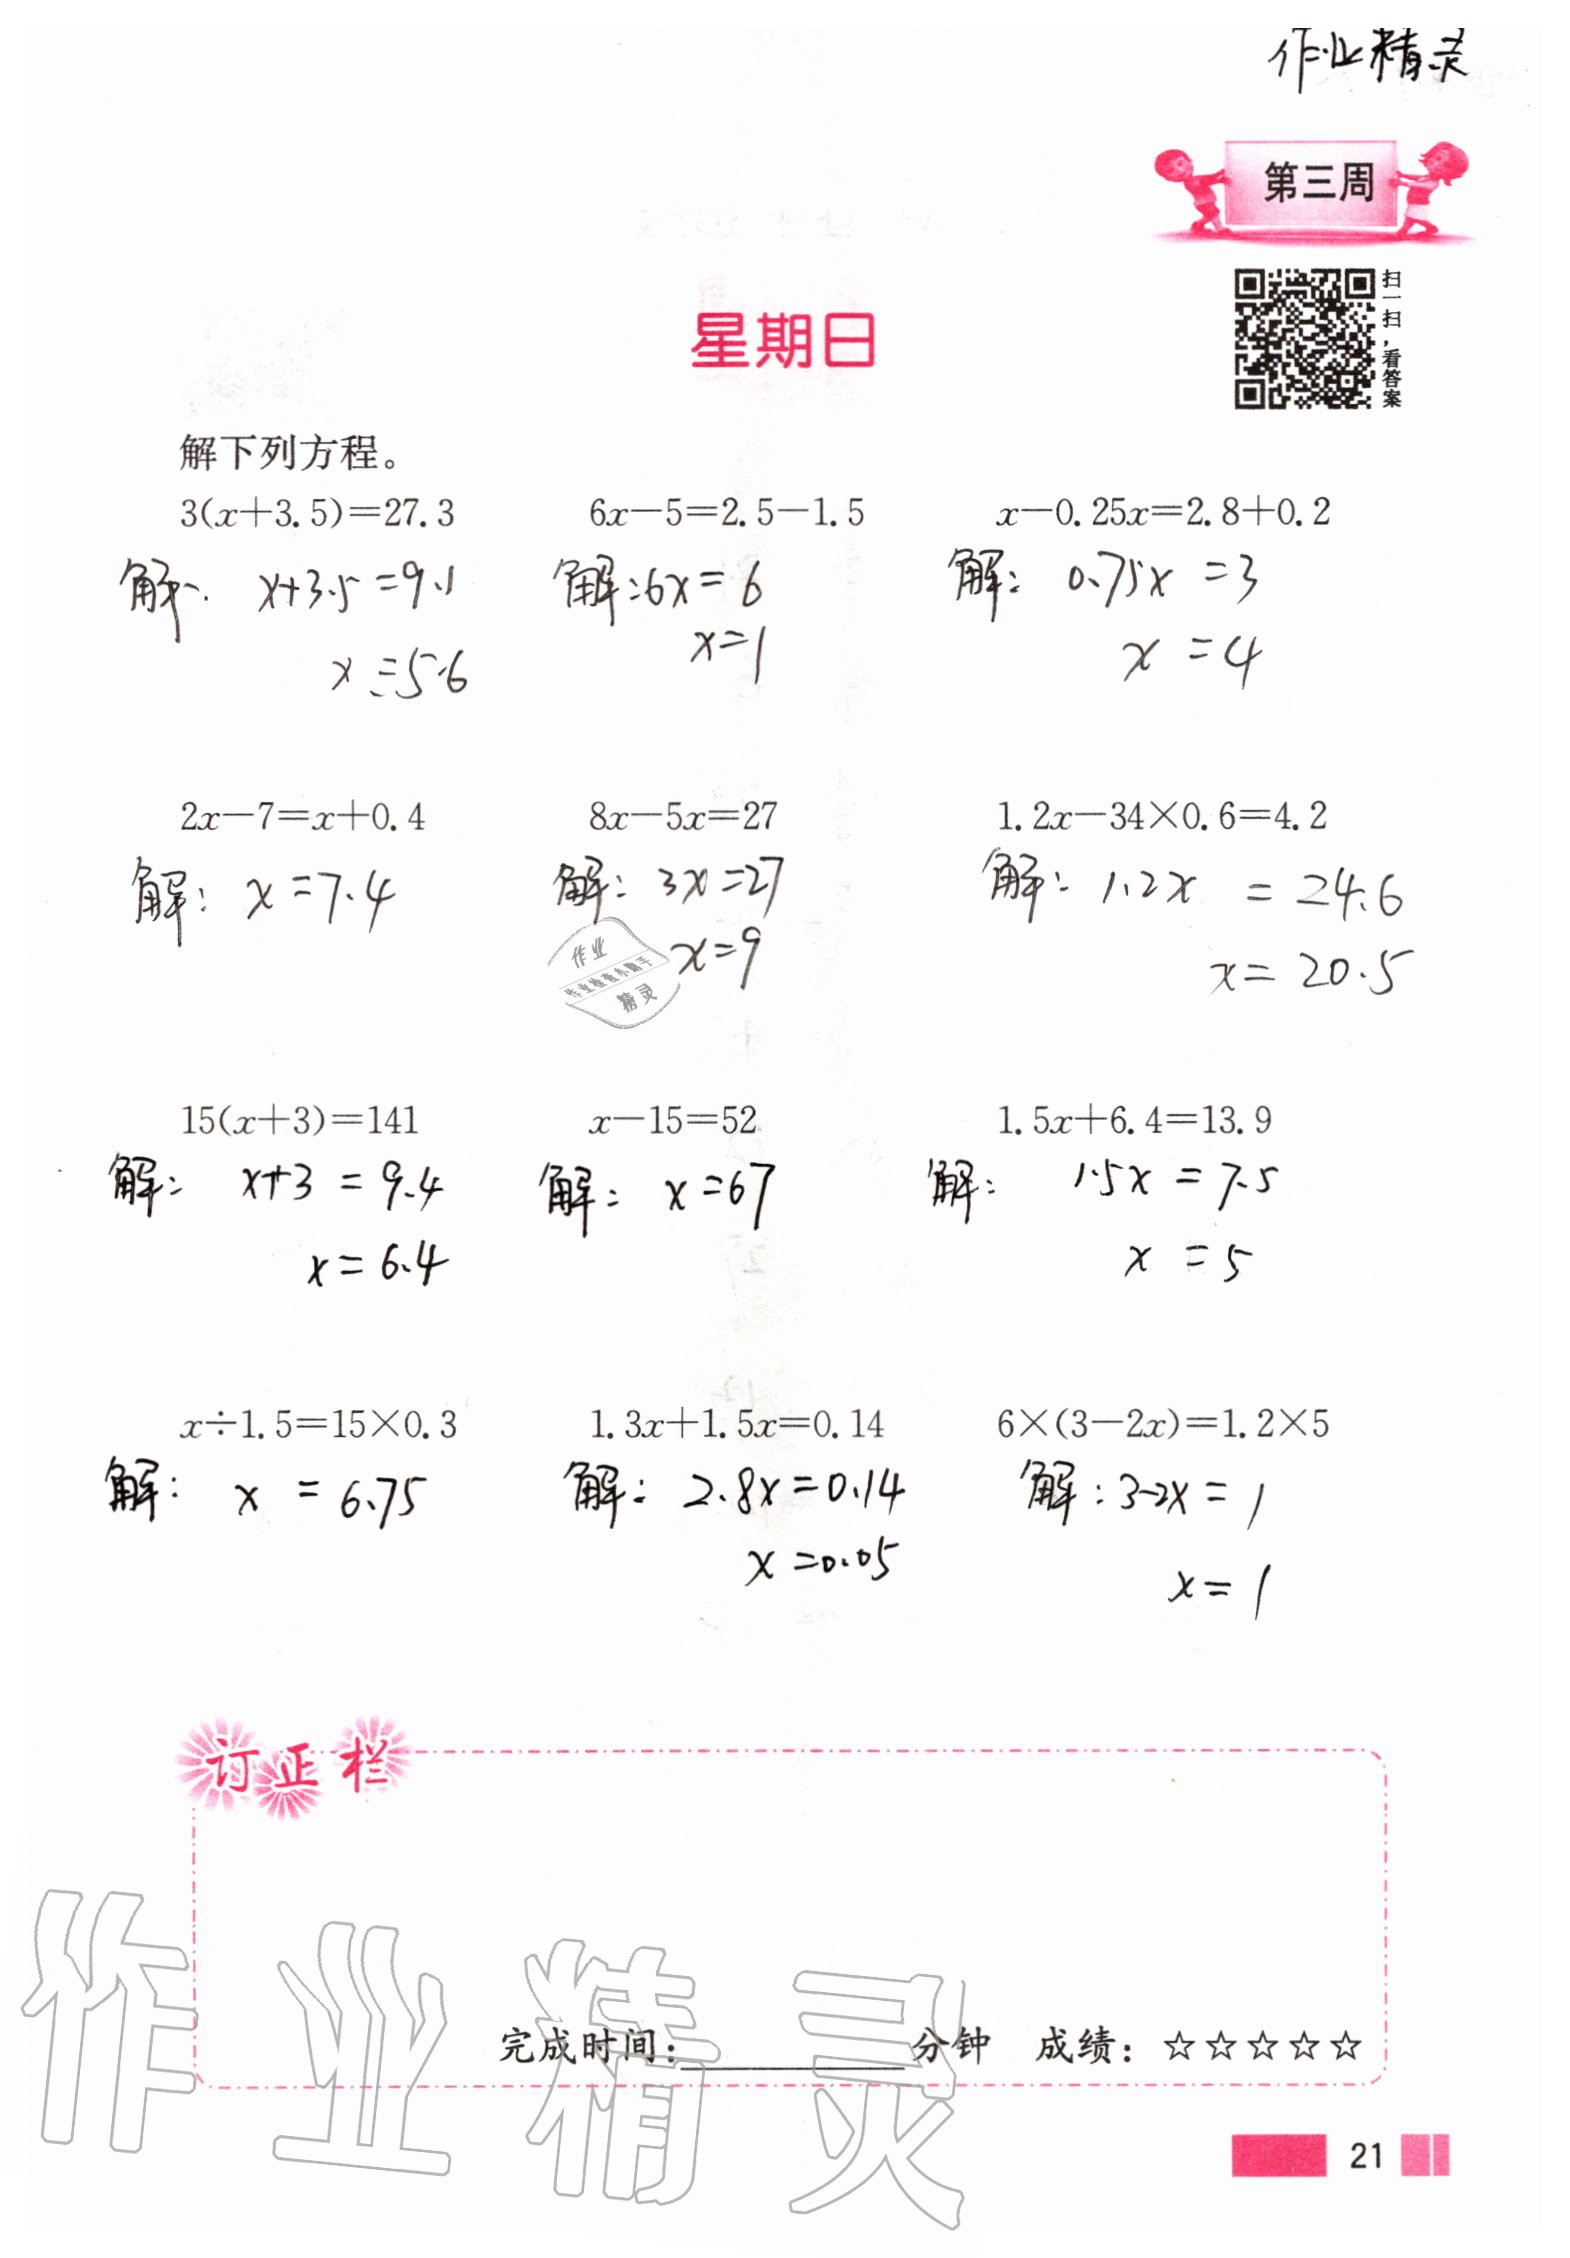 作业精灵
第三周
扫一扫,看答案
星期日
解下列方程。
3(x+3.5)=27.3 6x-5=2.5-1.5 x-0.25x=2.8+0.2
解: x+3.5=9.1 解:6x=6 解: 0.75x=3
x=5.6 x=1 x=4
2x-7=x+0.4 8x-5x=27 1.2x-34×0.6=4.2
解: x=7.4 解: 3x=27 解: 1.2x=24.6
x=9 x=20.5
作业
作业检查小助手
精灵
15(x+3)=141 x-15=52 1.5x+6.4=13.9
解: x+3=9.4 解: x=67 解: 1.5x=7.5
x=6.4 x=5
x÷1.5=15×0.3 1.3x+1.5x=0.14 6×(3-2x)=1.2×5
解: x=6.75 解: 2.8x=0.14 解:3-2x=1
x=0.05 x=1
订正栏
作业精灵
完成时间:________分钟 成绩:☆☆☆☆☆
21